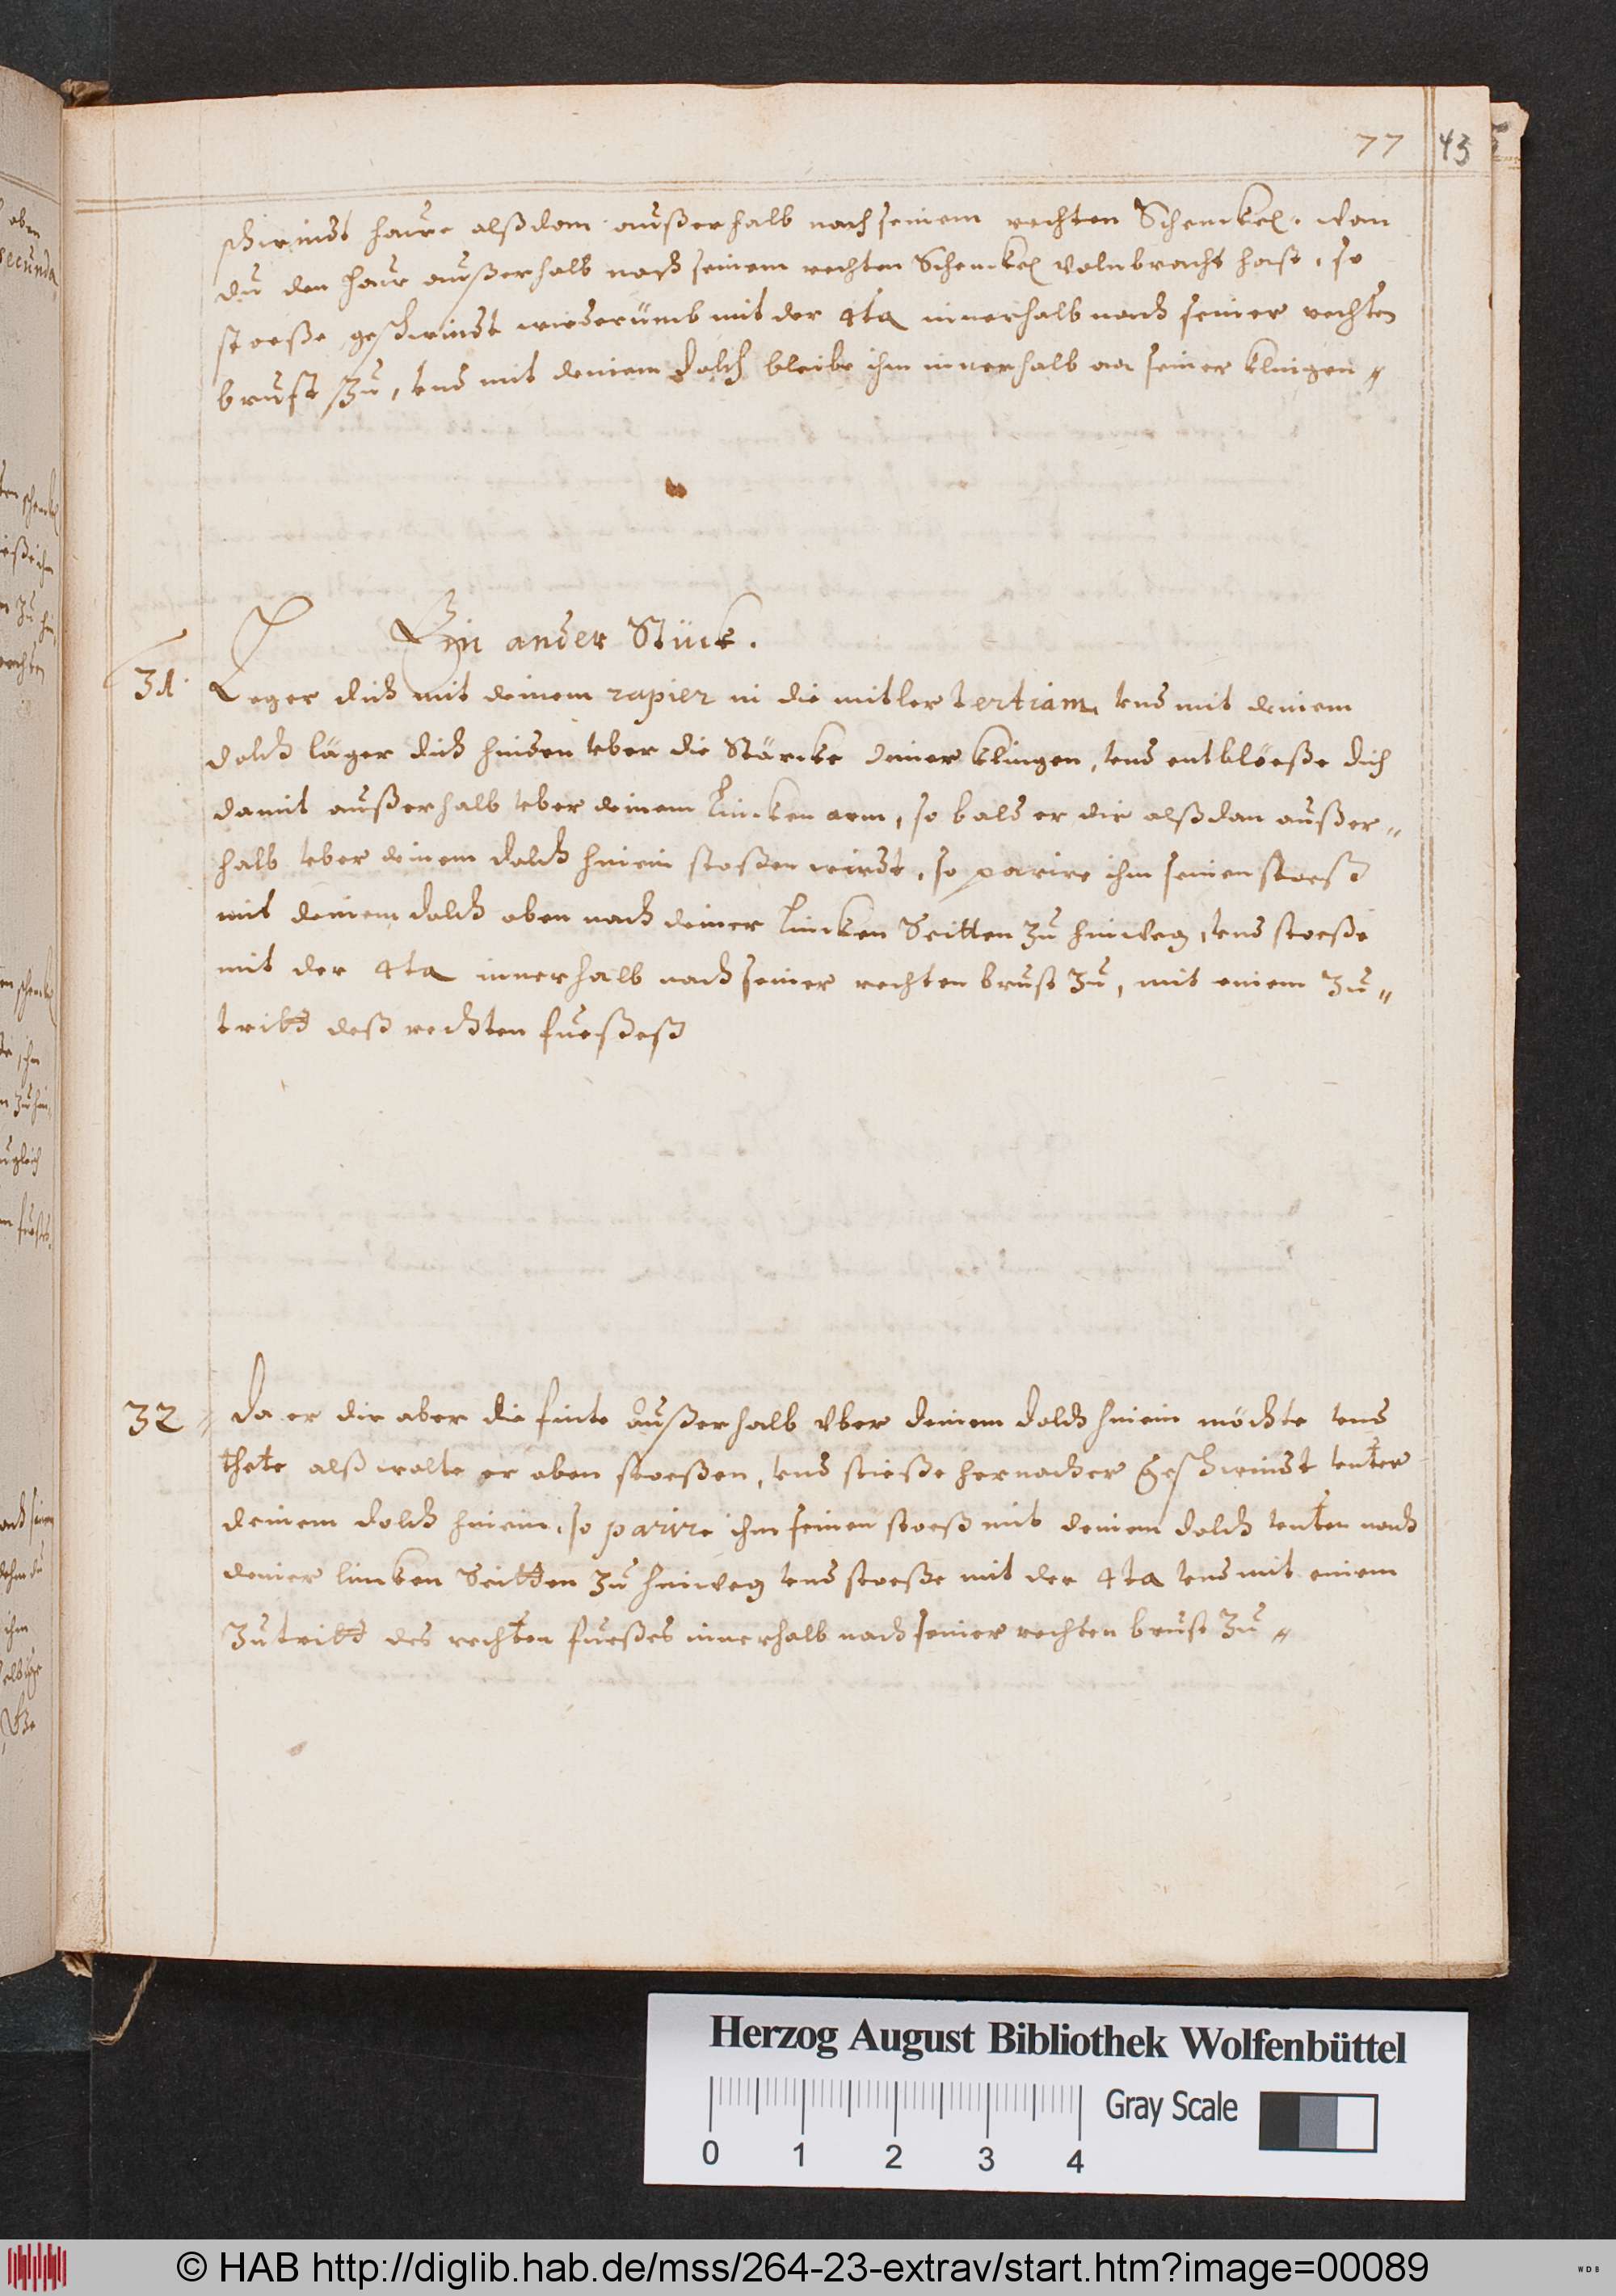 77 43
schwindt hauwe alßdan außerhalb nach seinem rechten Schenckel. wan
du den hauw außerhalb nach seinem rechten Schenckel volnbracht hast, so
stoeße geschwindt wiederumb mit der 4ta innerhalb nach seiner rechten
brust zu, vnd mit deinem dolch bleibe ihm innerhalb an seiner klingen
Ein ander Stück.
31. Leger dich mit deinem rapier in die mitler tertiam, vnd mit deinem
dolch läger dich hinden vber die Stärcke deiner klingen, vnd entblöeße dich
damit außerhalb vber deinem lincken arm, so bald er dir alßdan außer„
halb vber deinem dolch hinein stoßen wirdt, so parire ihm seinen stoeß
mit deinem dolch oben nach deiner lincken Seitten zu hinweg, vnd stoeße
mit der 4ta innerhalb nach seiner rechten brust zu, mit einem zu„
tritt deß rechten fueßeß
32 Da er dir aber die finte außerhalb vber deinem dolch hinein möchte vnd
thete alß wolte er oben stoeßen, vnd stieße hernacher geschwindt vnter
deinem dolch hinein, so parire ihm seinen stoeß mit deinem dolch vnten nach
deiner lincken Seitten zu hinweg vnd stoeße mit der 4ta vnd mit einem
zutritt des rechten fueßes innerhalb nach seiner rechten brust zu
Herzog August Bibliothek Wolfenbüttel
Gray Scale
0 1 2 3 4
© HAB http://diglib.hab.de/mss/264-23-extrav/start.htm?image=00089